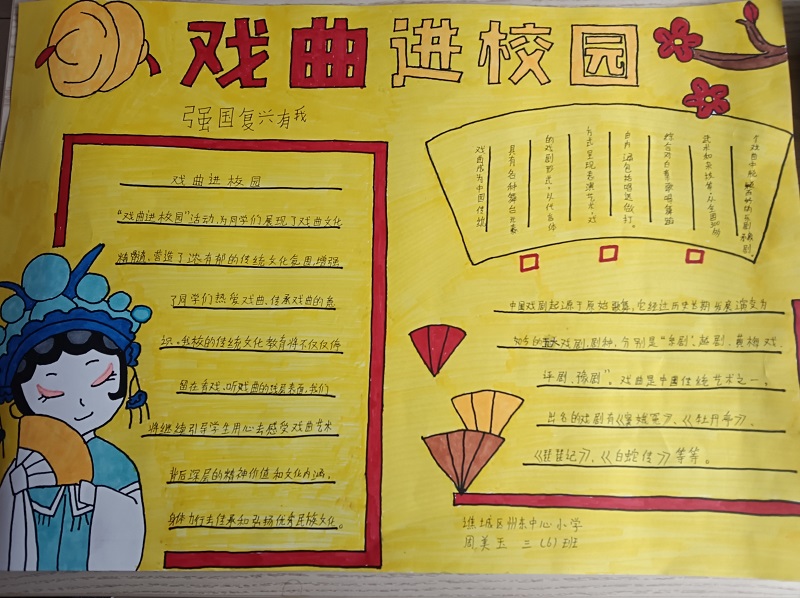 戏曲进校园
强国复兴有我
戏曲进校园
“戏曲进校园”活动,为同学们展现了戏曲文化
精髓,营造了浓有郁的传统文化氛围,增强
了同学们热爱戏曲、传承戏曲的意
识。我校的传统文化教育将不仅仅停
留在看戏、听戏曲的浅层表面,我们
将继续引导学生用心去感受戏曲艺术
背后深层的精神价值和文化内涵,
身体力行去传承和弘扬优秀民族文化。
综合对白音乐歌唱舞蹈
由内涵包括唱念做打
方式呈现表演艺术,戏
的戏剧形式,以代言体
具有各种舞台元素
戏曲作为中国传统
中国戏剧起源于原始歌舞,它经过历史长期发展演变为
知名的五大戏剧剧种,分别是“京剧、越剧、黄梅戏、
评剧、豫剧”。戏曲是中国传统艺术之一,
出名的戏剧有《窦娥冤》、《牡丹亭》、
《琵琶记》、《白蛇传》等等。
谯城区州东中心小学
周美玉 三(6)班